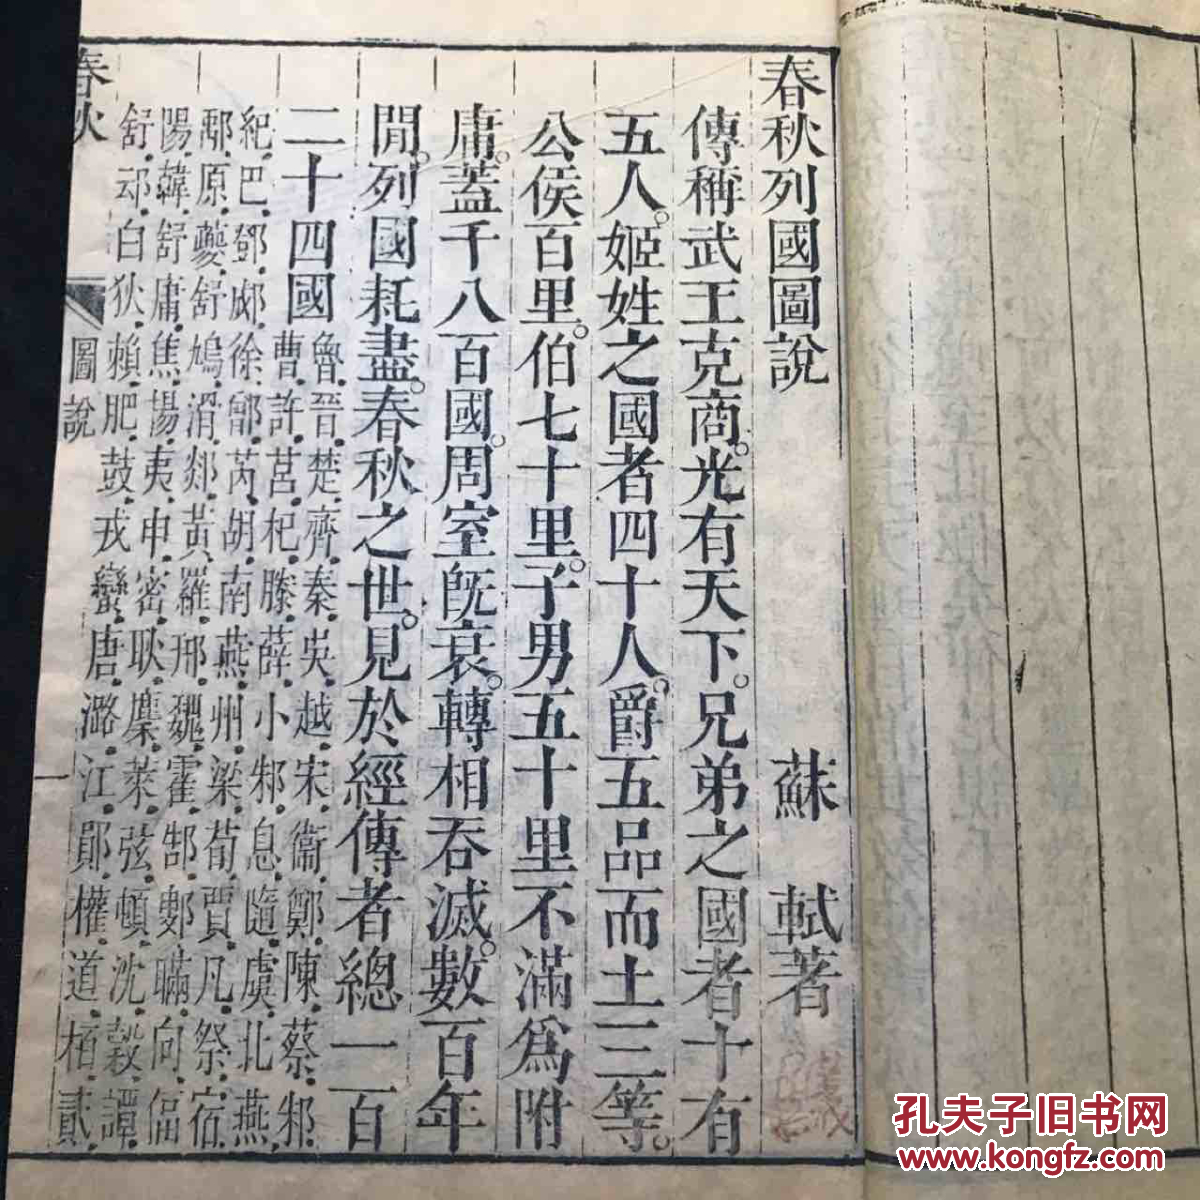 春秋列國圖說 蘇軾著
傳稱武王克商。光有天下。兄弟之國者十有
五人。姬姓之國者四十人。爵五品而土三等。
公侯百里。伯七十里。子男五十里不滿爲附
庸。蓋千八百國。周室旣衰。轉相吞滅。數百年
閒。列國耗盡。春秋之世。見於經傳者總一百
二十四國
魯.晉.楚.齊.秦.吳.越.宋.衞.鄭.陳.蔡.邾.
曹.許.莒.杞.滕.薛.小邾.息.隨.虞.北燕.
紀.巴.鄧.郕.徐.鄫.芮.胡.南燕.州.梁.荀.賈.凡.祭.宿.
鄅.原.夔.舒鳩.滑.郯.黃.羅.邢.魏.霍.郜.鄋瞞.向.偪
陽.韓.舒庸.焦.揚.夷.申.密.耿.麇.萊.弦.頓.沈.穀.譚.
舒.䢵.白狄.賴.肥.鼓.戎.蠻.唐.潞.江.鄖.權.道.柏.貳.
春秋 圖說 一
孔夫子旧书网
www.kongfz.com